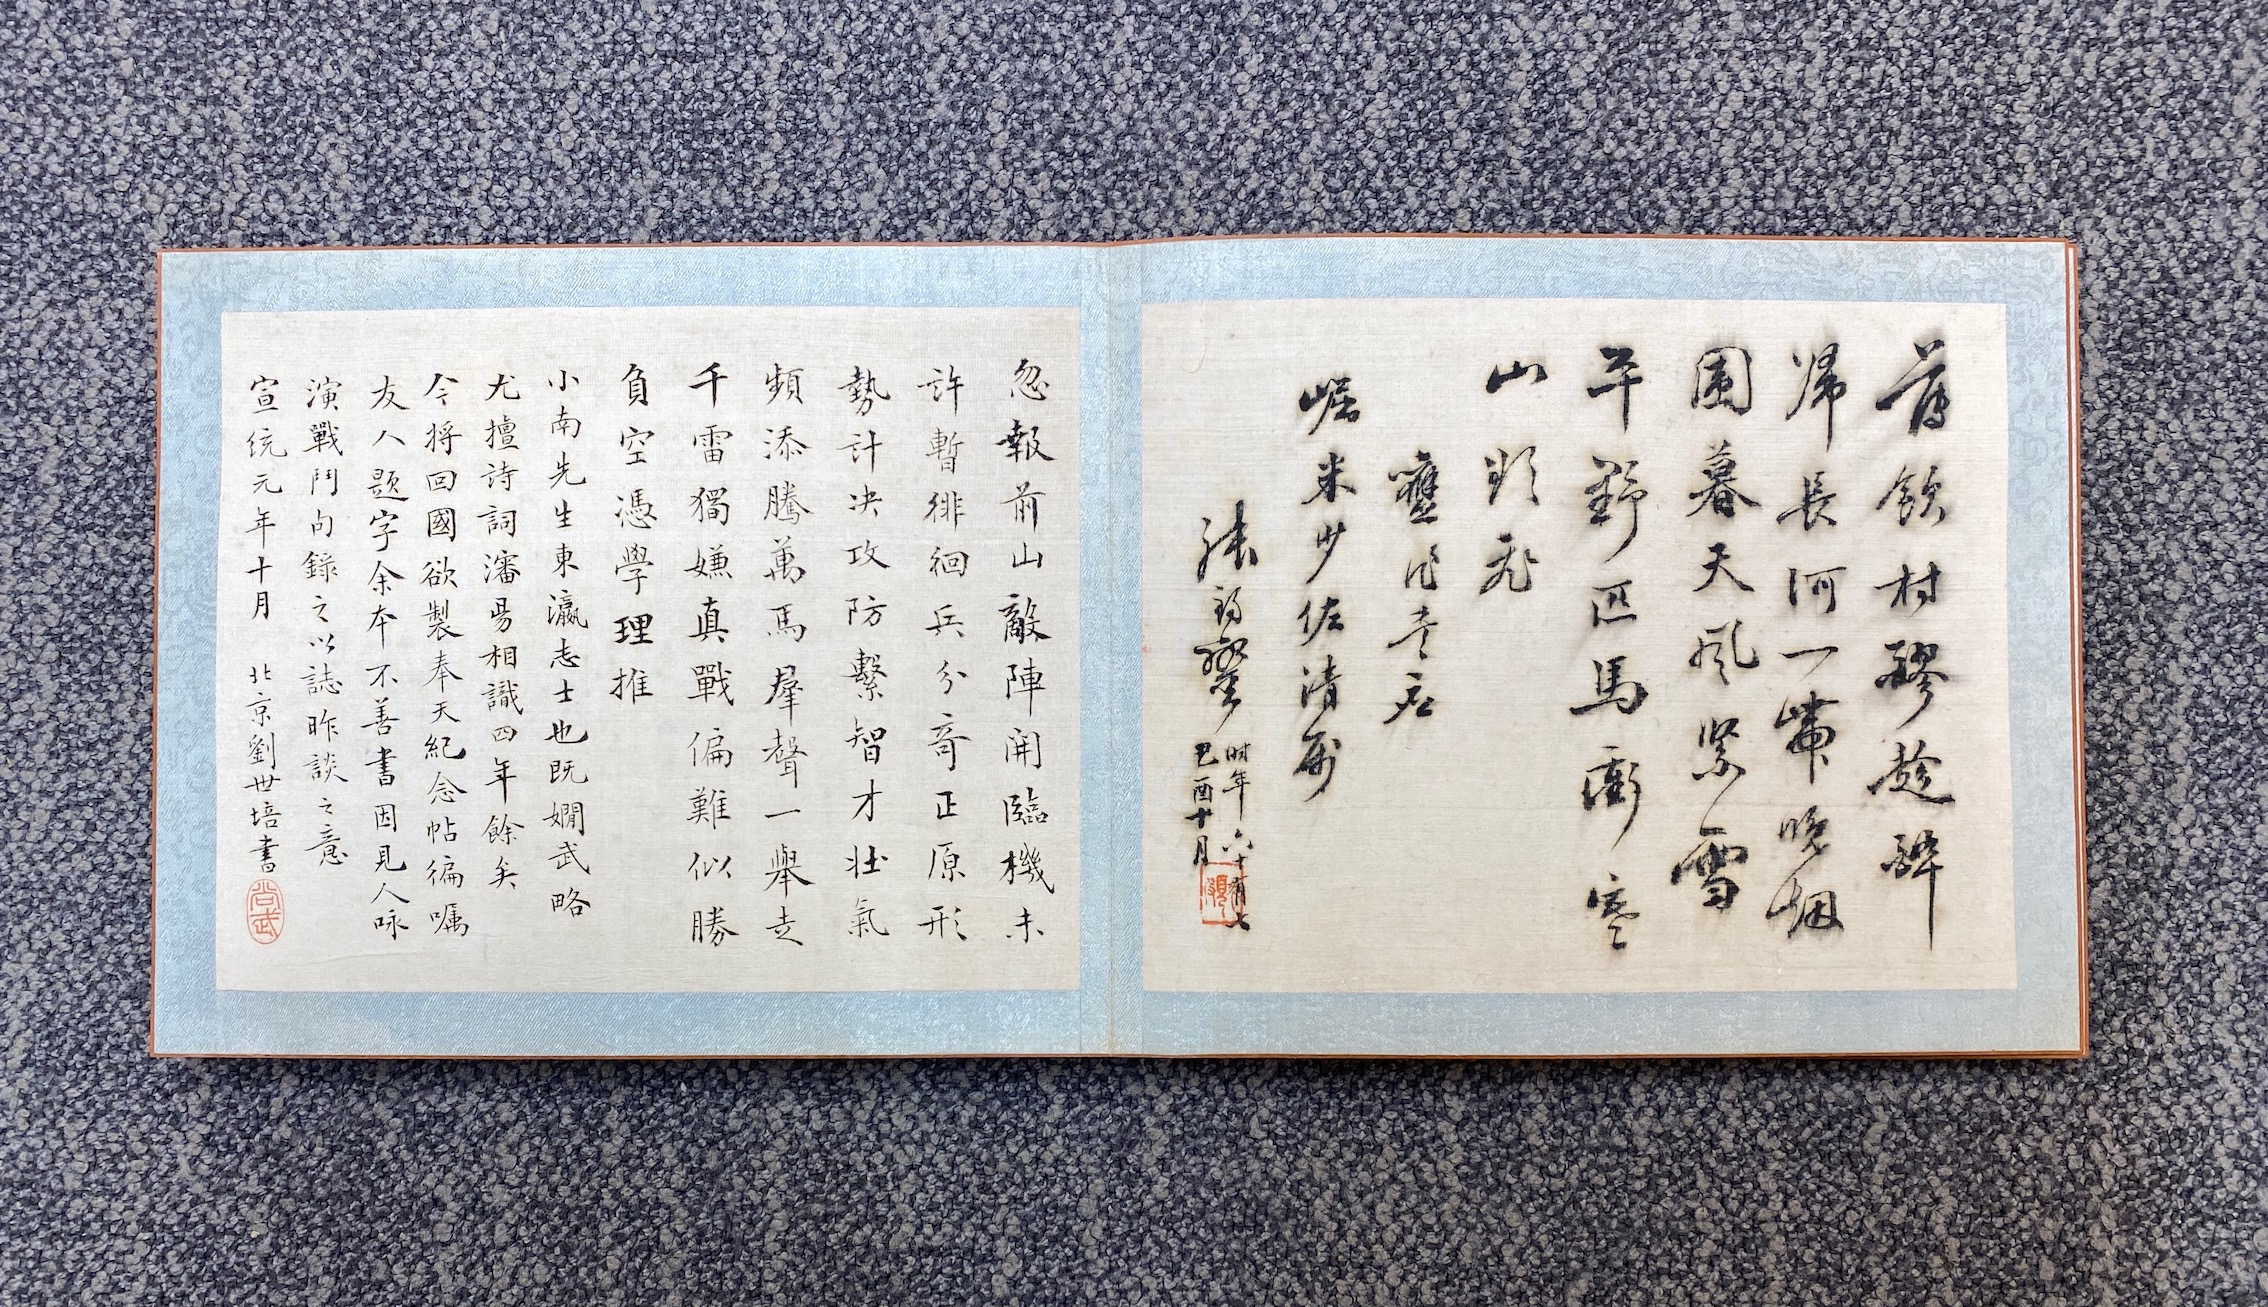 舊飲村醪趁醉
歸長河一帶晚烟
圍暮天風緊雪
平野匹馬衝寒
山頭飛
崛米少佐清屬
張
時年六十有七
己酉十月
忽報前山敵陣開臨機未
許暫徘徊兵分奇正原形
勢計決攻防繫智才壯氣
頻添騰萬馬羣聲一舉走
千雷獨嫌真戰偏難似勝
負空憑學理推
小南先生東瀛志士也既嫺武略
尤擅詩詞瀋昜相識四年餘矣
今將回國欲製奉天紀念帖徧囑
友人題字余本不善書因見人咏
演戰鬥句錄之以誌昨談之意
宣統元年十月 北京劉世培書
尚武